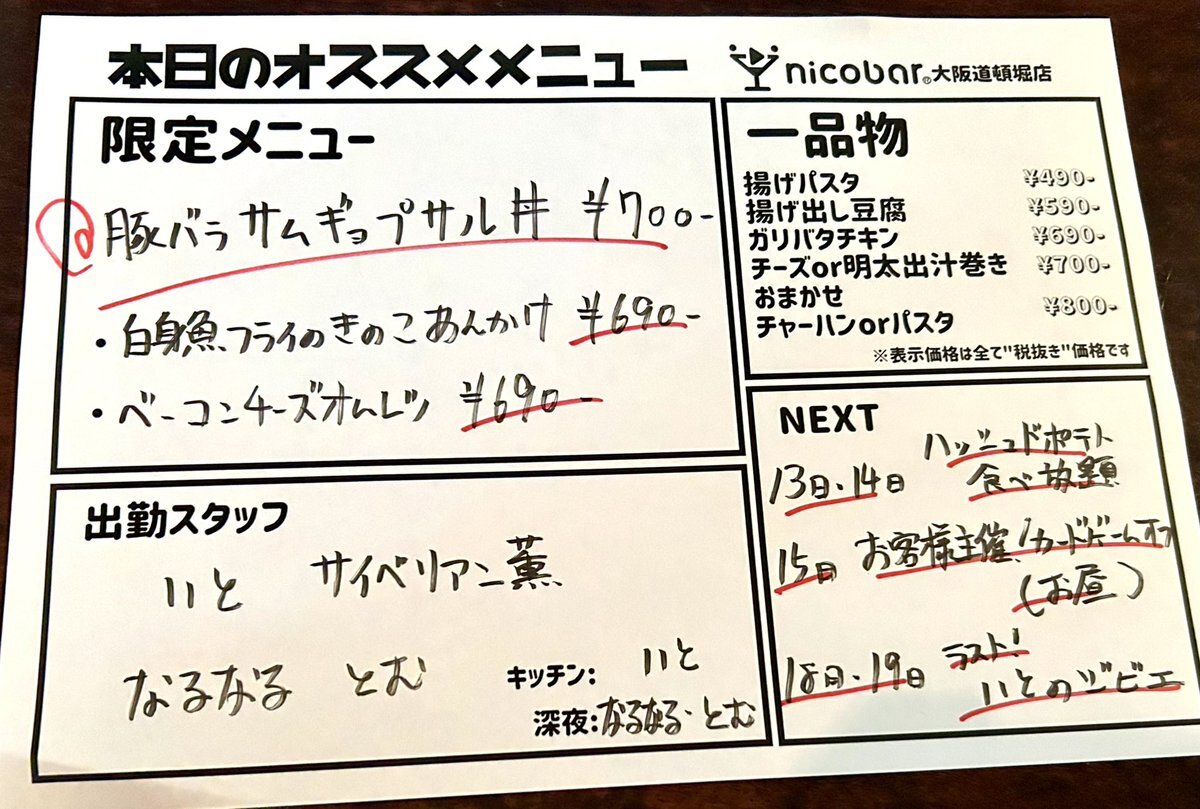 本日のオススメメニュー
nicobar® 大阪道頓堀店
限定メニュー
豚バラサムギョプサル丼 ¥700-
・白身魚フライのきのこあんかけ ¥690-
・ベーコンチーズオムレツ ¥690-
一品物
揚げパスタ ¥490-
揚げ出し豆腐 ¥590-
ガリバタチキン ¥690-
チーズor明太出汁巻き ¥700-
おまかせ
チャーハンorパスタ ¥800-
※表示価格は全て"税抜き"価格です
出勤スタッフ
いと サイベリアン薫
なるなる とむ
キッチン: いと
深夜:なるなる・とむ
NEXT
ハッシュドポテト
13日・14日 食べ放題
15日 お客様主催!カードゲームオフ
(お昼)
ラスト!
18日・19日 いとのジビエ